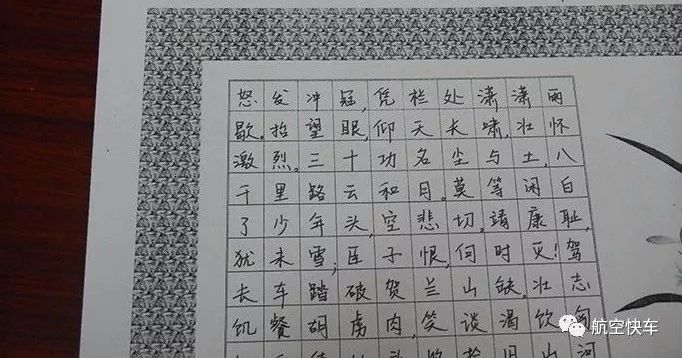 怒发冲冠,凭栏处潇潇雨
歇。抬望眼,仰天长啸,壮怀
激烈。三十功名尘与土,八
千里路云和月。莫等闲白
了少年头,空悲切。靖康耻,
犹未雪,臣子恨,何时灭!驾
长车踏破贺兰山缺,壮志
饥餐胡虏肉,笑谈渴饮匈
头 收拾 山河
航空快车